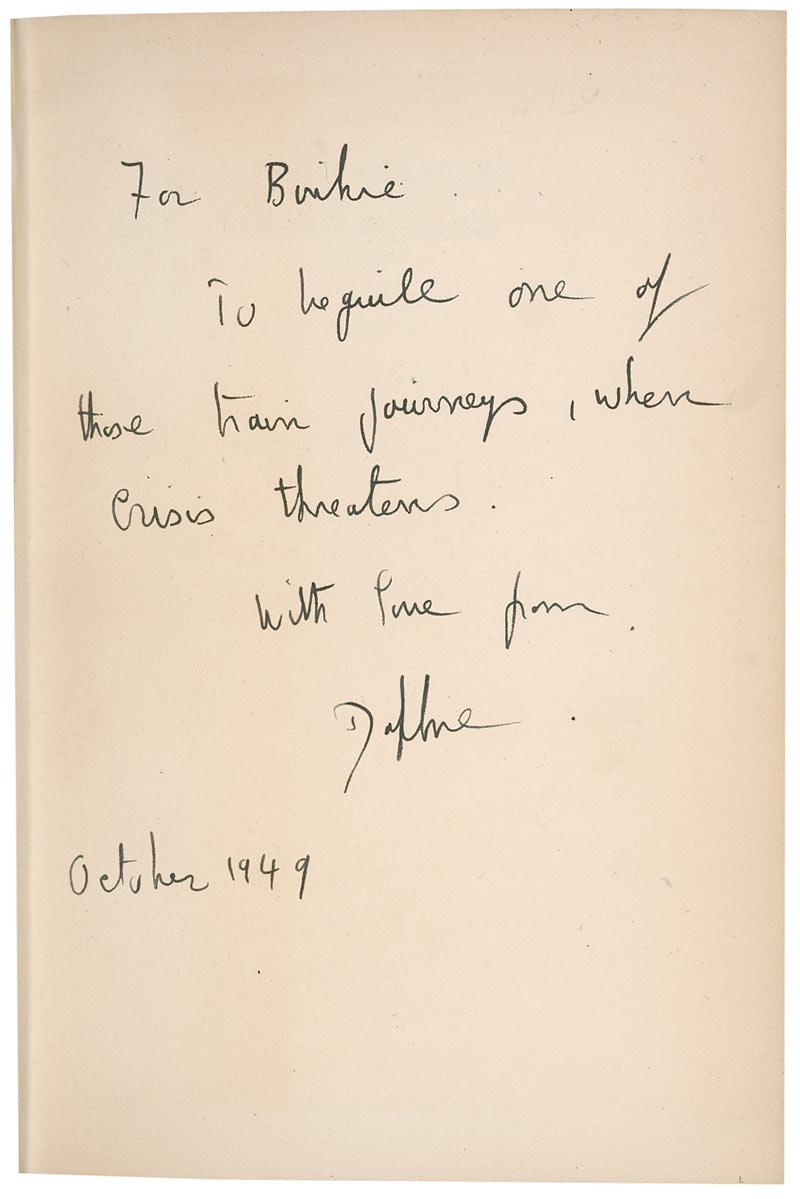 For
To beguile one of
those train journeys, when
crisis threatens.
With love from.
Daphne.
October 1949